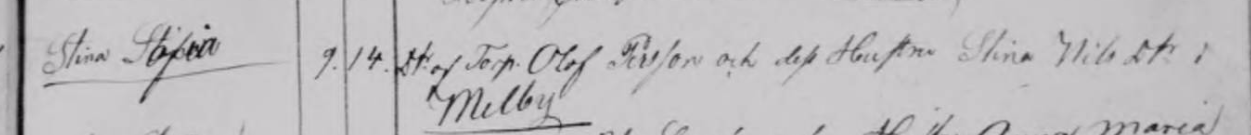 Stina Sofia 9. 14. Dtr af Torp. Olof Persson och dess Hustru Stina Nils Dtr i
Melby
Maria